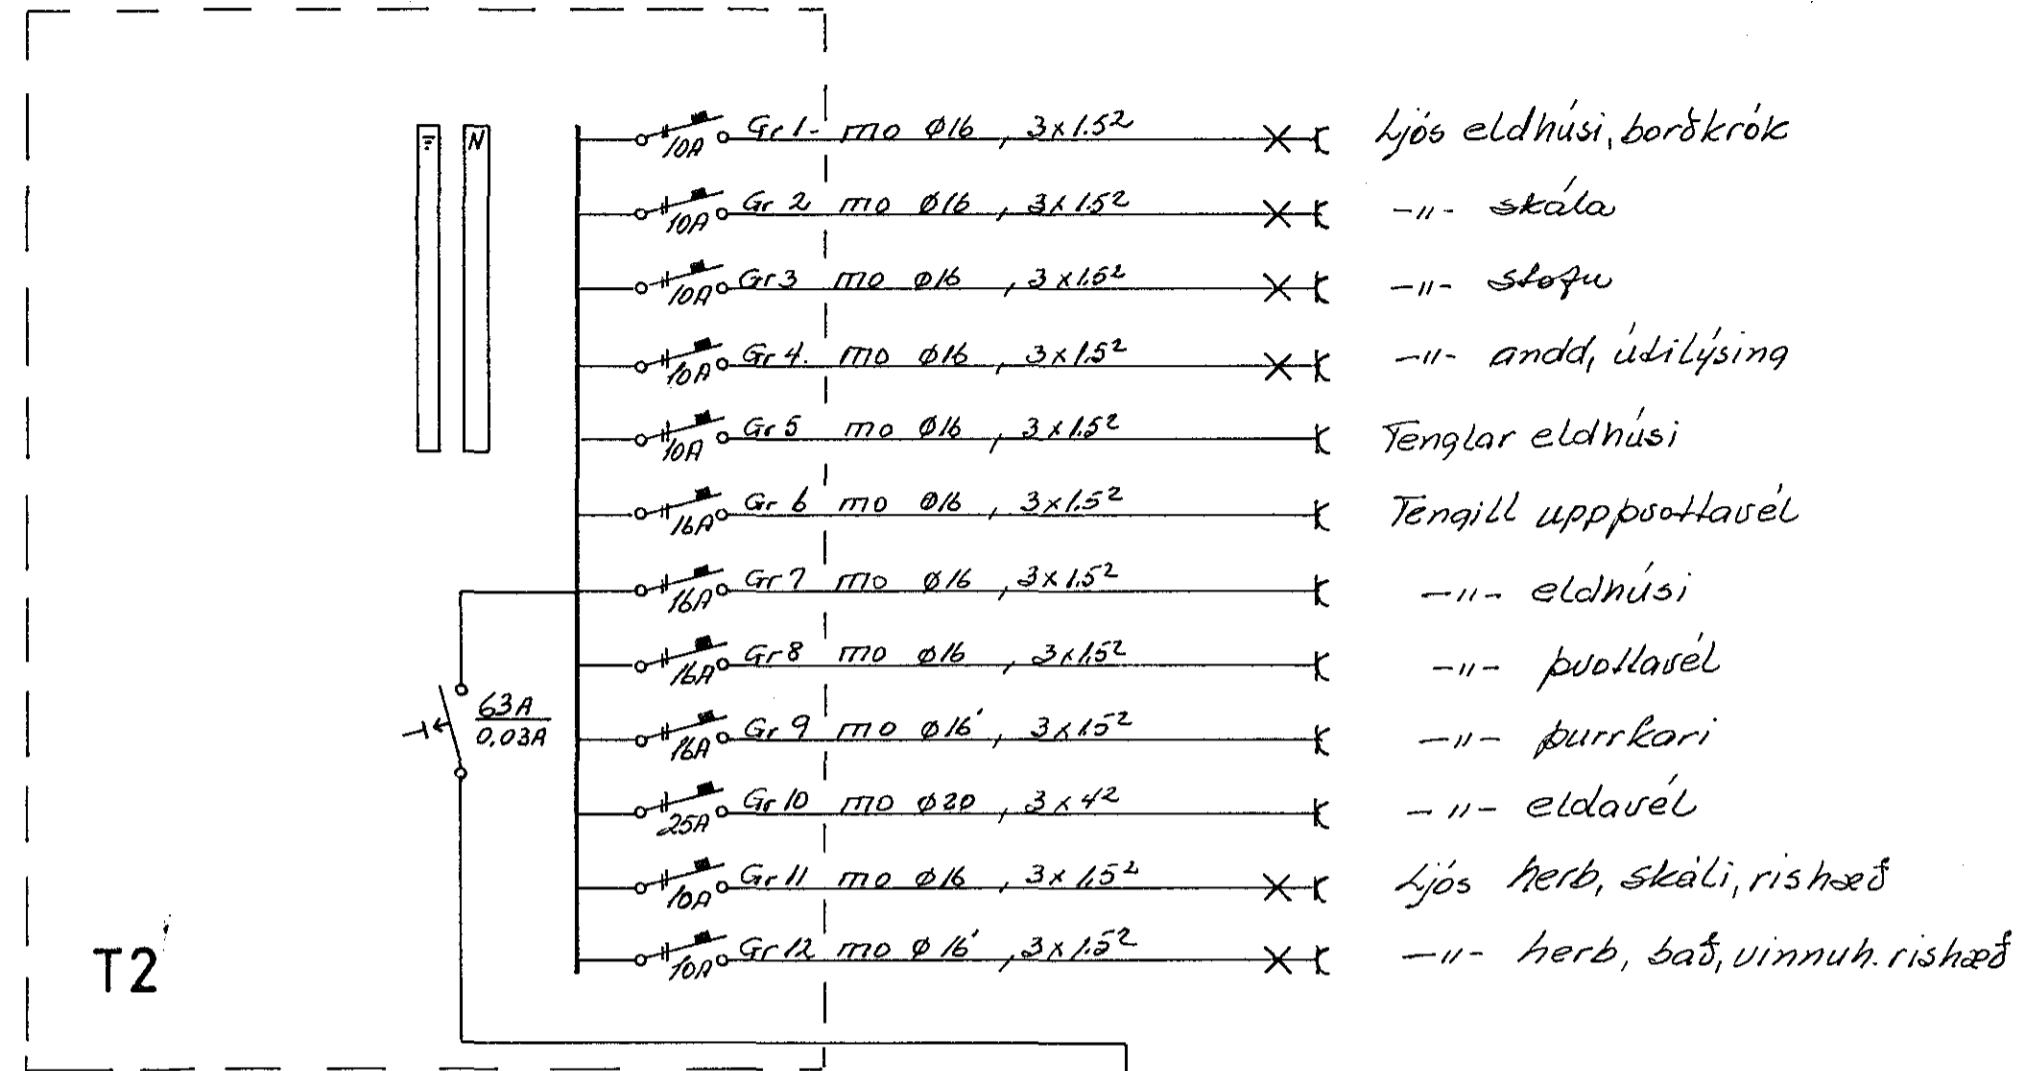 N
10A Gr 1- mo ø16 , 3x1.5² Ljós eldhúsi, borðkrók
10A Gr 2 mo ø16 , 3x1.5² -"- skála
10A Gr 3 mo ø16 , 3x1.5² -"- stofu
10A Gr 4. mo ø16 , 3x1.5² -"- andd, útilýsing
10A Gr 5 mo ø16 , 3x1.5² Tenglar eldhúsi
16A Gr 6 mo ø16 , 3x1.5² Tengill uppþvottavél
16A Gr 7 mo ø16 , 3x1.5² -"- eldhúsi
16A Gr 8 mo ø16 , 3x1.5² -"- þvottavél
63A
0.03A
16A Gr 9 mo ø16 , 3x1.5² -"- þurrkari
25A Gr 10 mo ø20 , 3x4² -"- eldavél
10A Gr 11 mo ø16 , 3x1.5² Ljós herb, skáli, rishæð
10A Gr 12 mo ø16 , 3x1.5² -"- herb, bað, vinnuh. rishæð
T2